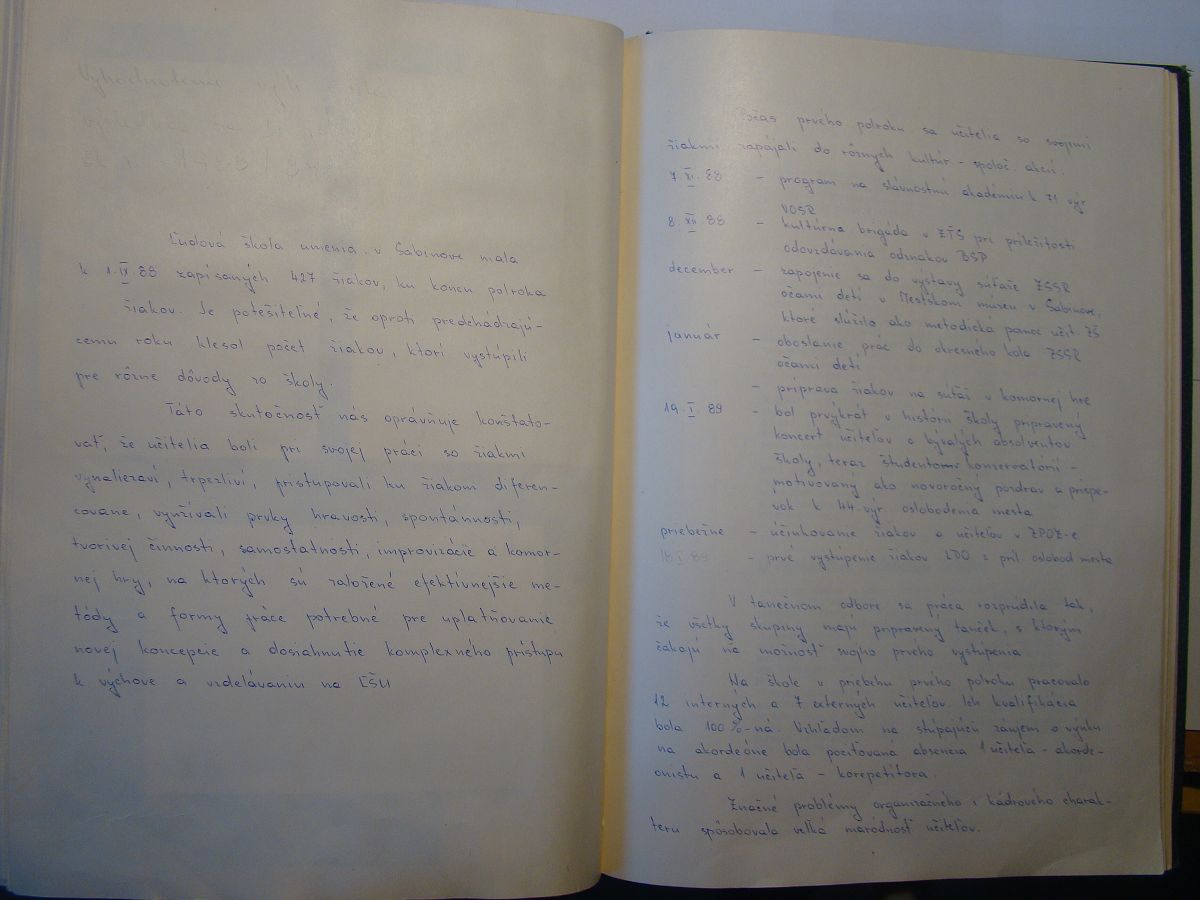 Ľudová škola umenia v Sabinove mala
k 1. IX 88 zapísaných 427 žiakov, ku koncu polroka
žiakov. Je potešiteľné, že oproti predchádzajú-
cemu roku klesol počet žiakov, ktorí vystúpili
pre rôzne dôvody zo školy.
Táto skutočnosť nás oprávňuje konštato-
vať, že učitelia boli pri svojej práci so žiakmi
vynaliezaví, trpezliví, pristupovali ku žiakom diferen-
covane, využívali prvky hravosti, spontánnosti,
tvorivej činnosti, samostatnosti, improvizácie a komor-
nej hry, na ktorých sú založené efektívnejšie me-
tódy a formy práce potrebné pre uplatňovanie
novej koncepcie a dosiahnutie komplexného prístupu
k výchove a vzdelávaniu na ĽŠU
Počas prvého polroku sa učitelia so svojimi
žiakmi zapájali do rôznych kultúr - spoloč. akcií.
7. XI. 88 - program na slávnostnú akadémiu k 71 výr
VOSR
8. XII 88 - kultúrna brigáda v ZŤS pri príležitosti
odovzdávania odznakov BSP
december - zapojenie sa do výstavy súťaže ZSSR
očami detí v Mestskom múzeu v Sabinove,
ktoré slúžilo ako metodická pomoc učit ZŠ
január - oboslanie prác do okresného kola ZSSR
očami detí
- príprava žiakov na súťaž v komornej hre
19. I. 89 - bol prvýkrát v histórii školy pripravený
koncert učiteľov a bývalých absolventov
školy, teraz študentov konzervatórií -
motivovaný ako novoročný pozdrav a príspe-
vok k 44 výr. oslobodenia mesta
priebežne - účinkovanie žiakov a učiteľov v ZPOZ-e
18. I. 89 - prvé vystúpenie žiakov LDO z príl. oslobod mesta
V tanečnom odbore sa práca rozprúdila tak,
že všetky skupiny majú pripravený tanček, s ktorým
čakajú na možnosť svojho prvého vystúpenia
Na škole v priebehu prvého polroku pracovalo
12 interných a 7 externých učiteľov. Ich kvalifikácia
bola 100 %-ná. Vzhľadom na stúpajúci záujem o výuku
na akordeóne bola pociťovaná absencia 1 učiteľa - akorde-
onistu a 1 učiteľa - korepetítora.
Značné problémy organizačného i kádrového charak-
teru spôsobovala veľká maródnosť učiteľov.